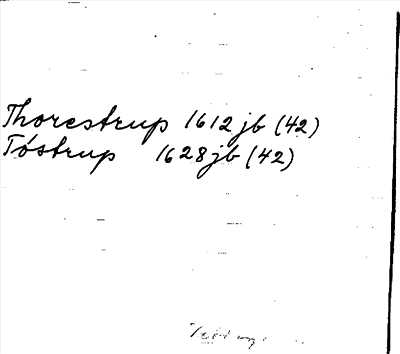 Thorestrup 1612 jb (42)
Tøstrup 1628 jb (42)